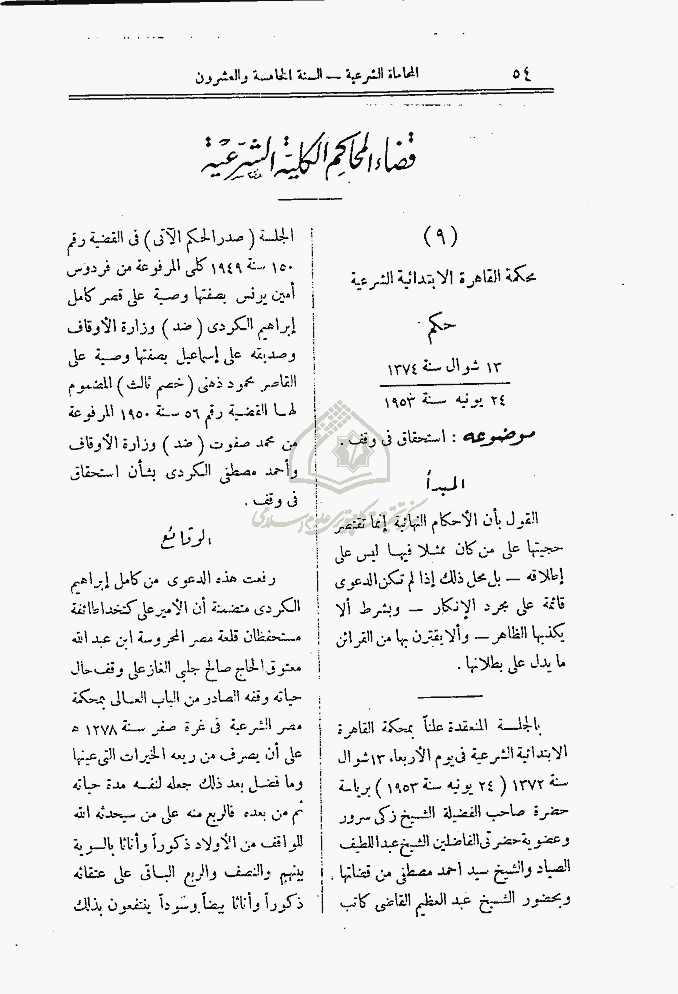 ٥٤
المحاماة الشرعية — السنة الخامسة والعشرون
قضاء المحاكم الكلية الشرعية
(٩)
محكمة القاهرة الابتدائية الشرعية
حكم
١٣ شوال سنة ١٣٧٤
٢٤ يونيه سنة ١٩٥٣
موضوعه : استحقاق فى وقف .
المبدأ
القول بأن الأحكام النهائية إنما تقتصر
حجيتها على من كان ممثلا فيها ليس على
إطلاقه — بل محل ذلك إذا لم تكن الدعوى
قائمة على مجرد الإنكار — وبشرط ألا
يكذبها الظاهر — وألا يقترن بها من القرائن
ما يدل على بطلانها .
بالجلسة المنعقدة علناً بمحكمة القاهرة
الابتدائية الشرعية فى يوم الأربعاء ١٣ شوال
سنة ١٣٧٢ ( ٢٤ يونيه سنة ١٩٥٣ ) برياسة
حضرة صاحب الفضيلة الشيخ زكى سرور
وعضوية حضرتى الفاضلين الشيخ عبد اللطيف
الصياد والشيخ سيد احمد مصطفى من قضاتها .
وبحضور الشيخ عبد العظيم القاضى كاتب
الجلسة ( صدر الحكم الآتى ) فى القضية رقم
١٥٠ سنة ١٩٤٩ كلى المرفوعة من فردوس
أمين يونس بصفتها وصية على قصر كامل
إبراهيم الكردى ( ضد ) وزارة الأوقاف
وصديقه على إسماعيل بصفتها وصية على
القاصر محمود ذهنى ( خصم ثالث ) المضموم
لها القضية رقم ٥٦ سنة ١٩٥٠ المرفوعة
من محمد صفوت ( ضد ) وزارة الأوقاف
وأحمد مصطفى الكردى بشأن استحقاق
فى وقف .
الوقائع
رفعت هذه الدعوى من كامل إبراهيم
الكردى متضمنة أن الأمير على كتخدا طائفة
مستحفظان قلعة مصر المحروسة ابن عبد الله
معتوق الحاج صالح جلبى الغاز على وقف حال
حياته وقفه الصادر من الباب العالى بمحكمة
مصر الشرعية فى غرة صفر سنة ١٢٧٨ ه
على أن يصرف من ريعه الخيرات التى عينها
وما فضل بعد ذلك جعله لنفسه مدة حياته
ثم من بعده فالربع منه على من سيحدثه الله
للواقف من الأولاد ذكوراً وأناثا بالسوية
بينهم والنصف والربع الباقى على عتقائه
ذكوراً وأناثا بيضاً وسُوداً ينتفعون بذلك